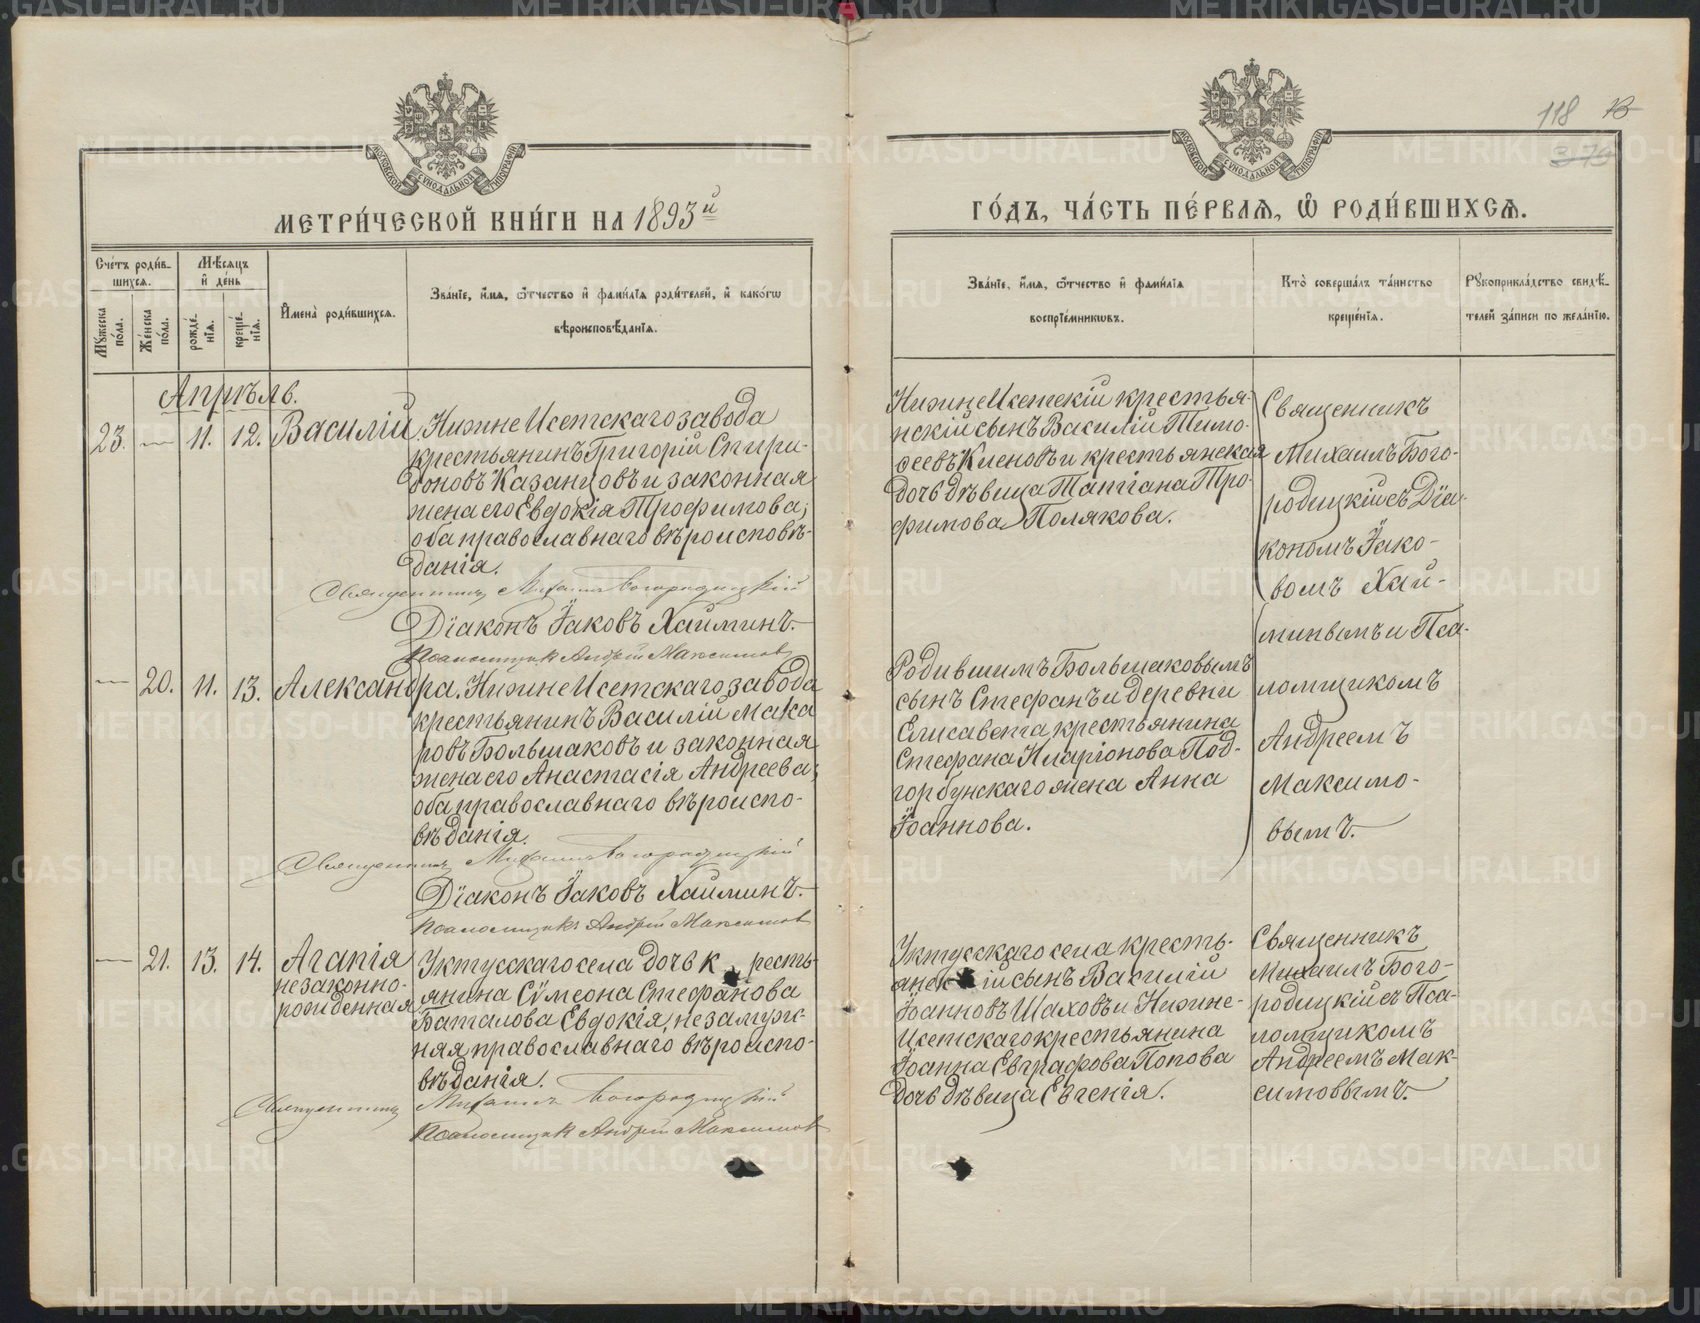 118 13
376
МЕТРИ́ЧЕСКОЙ КНИ́ГИ НА 1893й
ГО́ДЪ, ЧА́СТЬ ПЕ́РВАЯ, Ѽ РОДИ́ВШИХСѦ.
МОСКОВСКОЙ СѴНОДАЛЬНОЙ ТИПОГРАФІИ
МОСКОВСКОЙ СѴНОДАЛЬНОЙ ТИПОГРАФІИ
Сче́тъ роди́в-
шихся.
Мѣ́сяцъ
и҆ де́нь
Мꙋ́жеска
по́ла.
Же́нска
по́ла.
рожде́-
нїя.
креще́-
нїя.
И҆мена̀ роди́вшихся.
Зва́нїе, и҆́мя, ѻ҆́тчество и҆ фами́лїя роди́телей, и҆ како́гѡ
вѣроисповѣ́данїя.
Зва́нїе, и҆́мя, ѻ҆́тчество и҆ фами́лїя
воспрїе́мникѡвъ.
Кто̀ соверша́лъ та́инство
креще́нїя.
Рꙋкоприкла́дство свидѣ́-
телей за́писи по жела́нїю.
Апрѣль.
23. — 11. 12. Василій
Нижне Исетскаго завода
крестьянинъ Григорій Спири-
доновъ Казанцовъ и законная
жена его Евдокія Трофимова;
оба православнаго вѣроисповѣ-
данія.
Священникъ Михаилъ Богородицкій
Дїаконъ Їаковъ Хайминъ.
Псаломщик Андрей Максимов
Нижне Исетскій крестья-
нскій сынъ Василій Тимо-
ѳеевъ Кленовъ и крестьянская
дочь дѣвица Татіана Тро-
фимова Полякова.
Священникъ
Михаилъ Бого-
родицкій съ Дїа-
кономъ Їако-
вомъ Хай-
минымъ и Пса-
ломщикомъ
Андреемъ
Максимо-
вымъ.
— 20. 11. 13. Александра.
Нижне Исетскаго завода
крестьянинъ Василій Мака
ровъ Большаковъ и законная
жена его Анастасія Андреева;
оба православнаго вѣроиспо-
вѣданія.
Священникъ Михаилъ Богородицкій
Дїаконъ Їаковъ Хайминъ.
Псаломщикъ Андрей Максимов
Родившимъ Большаковымъ
сынъ Стефанъ и деревни
Елисавета крестьянина
Стефана Иларіонова Под-
горбунскаго жена Анна
Їоаннова.
— 21. 13. 14. Агапія
незаконно-
рожденная
Уктусскаго села дочь к ресть-
янина Сѵмеона Стефанова
Баталова Евдокія, незамуж-
няя православнаго вѣроиспо-
вѣданія.
Священникъ Михаилъ Богородицкій
Псаломщик Андрей Максимов
Уктусскаго села кресть-
янск ій сынъ Василій
Їоанновъ Шаховъ и Нижне-
Исетскаго крестьянина
Їоанна Евграфова Попова
дочь дѣвица Евгенія.
Священникъ
Михаилъ Бого-
родицкій съ Пса-
ломщикомъ
Андреемъ Мак-
симовымъ.
METRIKI.GASO-URAL.RU